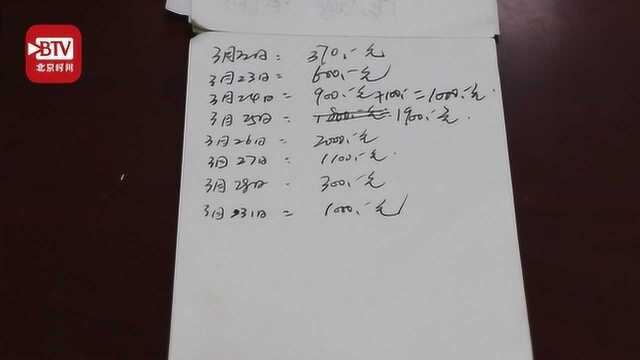 BTV
北京时间
3月22日: 370.-元
3月23日: 600.-元
3月24日: 900.-元+100.-=1000.-元.
3月25日: 1900.-元.
3月26日= 2000.-元
3月27日= 1100.-元.
3月28日= 300.-元
3月31日= 1000.-元